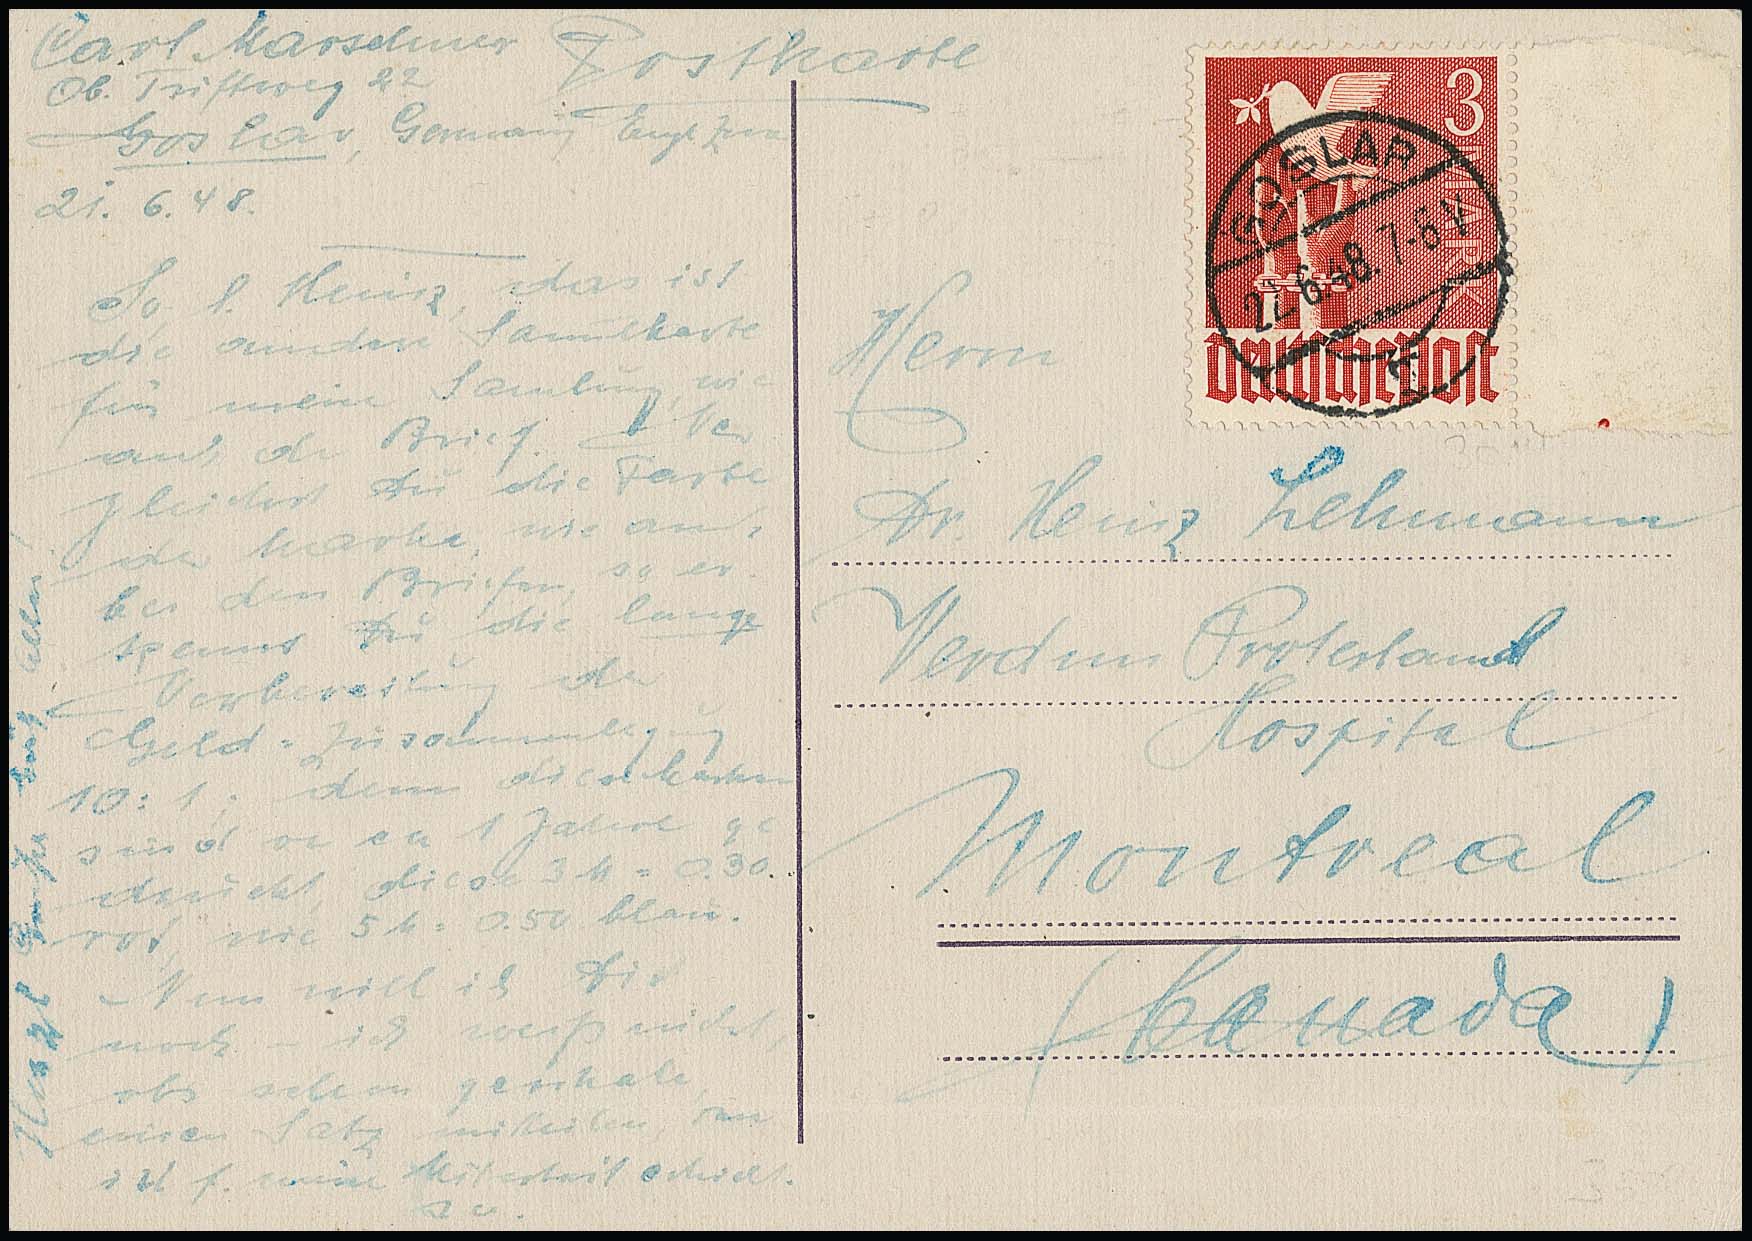 Carl Marschner Postkarte
Ob. Triftweg 22
Goslar, Germany Engl Zone
21. 6. 48.
So, l. Heinz, das ist
die andere Sammelkarte
für meine Samlung, wie
auch der Brief. Ver
gleichst Du die Farbe
der Marke, wie auch
bei den Briefen, so er
kennst Du die lange
Vorbereitung der
Geld-Zusammenlegung
10:1; denn diese Marken
sind vor ca 1 Jahre ge
druckt, diese 3 M = 0.30
rot, wie 5 M = 0.50 blau.
Nun will ich Dir
noch - ich weiß nicht,
ob schon geschehen,
einen Satz mitteilen,
ist f. meine
3 MARK
Deutsche Post
GOSLAR
22.6.48.7-8V
Herrn
Dr. Heinz Lehmann
Verdun Protestand
Hospital
Montreal
(Canada)
Herzl Grüße